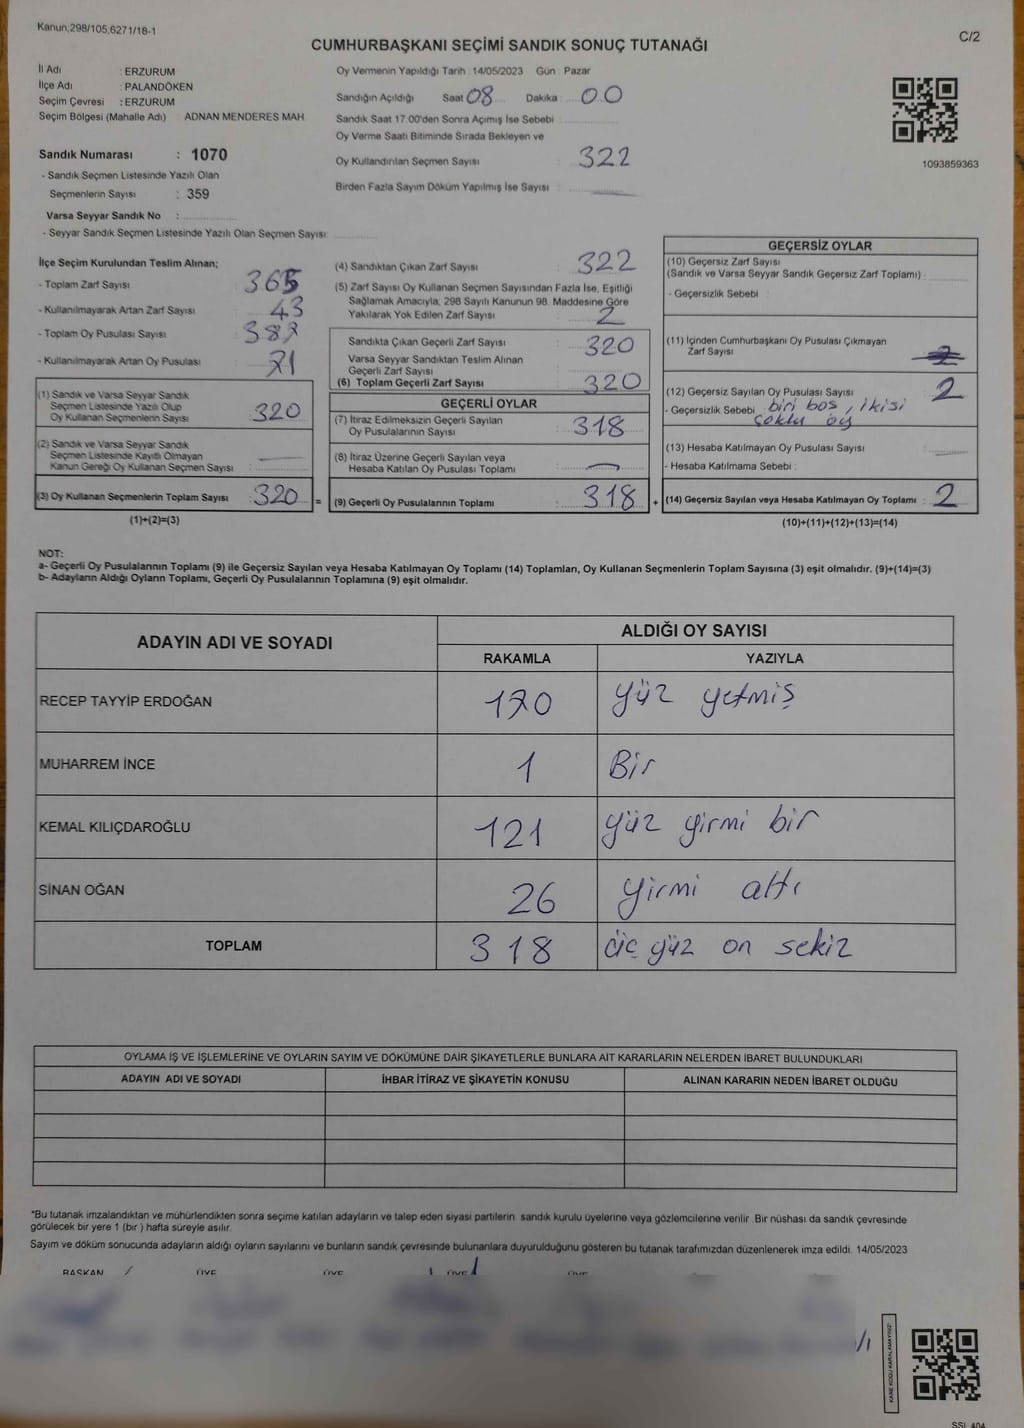 Kanun,298/105,6271/18-1
C/2
CUMHURBAŞKANI SEÇİMİ SANDIK SONUÇ TUTANAĞI
İl Adı : ERZURUM
İlçe Adı : PALANDÖKEN
Seçim Çevresi : ERZURUM
Seçim Bölgesi (Mahalle Adı) : ADNAN MENDERES MAH.
Sandık Numarası : 1070
- Sandık Seçmen Listesinde Yazılı Olan
Seçmenlerin Sayısı : 359
Varsa Seyyar Sandık No :
- Seyyar Sandık Seçmen Listesinde Yazılı Olan Seçmen Sayısı:
Oy Vermenin Yapıldığı Tarih : 14/05/2023 Gün : Pazar
Sandığın Açıldığı Saat 08 Dakika 00
Sandık Saat 17:00'den Sonra Açılmış İse Sebebi :
Oy Verme Saati Bitiminde Sırada Bekleyen ve
Oy Kullandırılan Seçmen Sayısı : 322
Birden Fazla Sayım Döküm Yapılmış İse Sayısı :
1093859363
İlçe Seçim Kurulundan Teslim Alınan;
- Toplam Zarf Sayısı : 365
- Kullanılmayarak Artan Zarf Sayısı : 43
- Toplam Oy Pusulası Sayısı :
- Kullanılmayarak Artan Oy Pusulası : 71
(1) Sandık ve Varsa Seyyar Sandık
Seçmen Listesinde Yazılı Olup
Oy Kullanan Seçmenlerin Sayısı : 320
(2) Sandık ve Varsa Seyyar Sandık
Seçmen Listesinde Kayıtlı Olmayan
Kanun Gereği Oy Kullanan Seçmen Sayısı :
(3) Oy Kullanan Seçmenlerin Toplam Sayısı : 320 =
(1)+(2)=(3)
(4) Sandıktan Çıkan Zarf Sayısı : 322
(5) Zarf Sayısı Oy Kullanan Seçmen Sayısından Fazla İse, Eşitliği
Sağlamak Amacıyla, 298 Sayılı Kanunun 98. Maddesine Göre
Yakılarak Yok Edilen Zarf Sayısı : 2
Sandıkta Çıkan Geçerli Zarf Sayısı : 320
Varsa Seyyar Sandıktan Teslim Alınan
Geçerli Zarf Sayısı :
(6) Toplam Geçerli Zarf Sayısı : 320
GEÇERLİ OYLAR
(7) İtiraz Edilmeksizin Geçerli Sayılan
Oy Pusulalarının Sayısı : 318
(8) İtiraz Üzerine Geçerli Sayılan veya
Hesaba Katılan Oy Pusulası Toplamı :
(9) Geçerli Oy Pusulalarının Toplamı : 318 +
GEÇERSİZ OYLAR
(10) Geçersiz Zarf Sayısı
(Sandık ve Varsa Seyyar Sandık Geçersiz Zarf Toplamı) :
- Geçersizlik Sebebi :
(11) İçinden Cumhurbaşkanı Oy Pusulası Çıkmayan
Zarf Sayısı :
(12) Geçersiz Sayılan Oy Pusulası Sayısı : 2
- Geçersizlik Sebebi : biri boş, ikisi
çoklu oy
(13) Hesaba Katılmayan Oy Pusulası Sayısı :
- Hesaba Katılmama Sebebi :
(14) Geçersiz Sayılan veya Hesaba Katılmayan Oy Toplamı : 2
(10)+(11)+(12)+(13)=(14)
NOT:
a- Geçerli Oy Pusulalarının Toplamı (9) ile Geçersiz Sayılan veya Hesaba Katılmayan Oy Toplamı (14) Toplamları, Oy Kullanan Seçmenlerin Toplam Sayısına (3) eşit olmalıdır. (9)+(14)=(3)
b- Adayların Aldığı Oyların Toplamı, Geçerli Oy Pusulalarının Toplamına (9) eşit olmalıdır.
ADAYIN ADI VE SOYADI ALDIĞI OY SAYISI
RAKAMLA YAZIYLA
RECEP TAYYİP ERDOĞAN 170 yüz yetmiş
MUHARREM İNCE 1 Bir
KEMAL KILIÇDAROĞLU 121 yüz yirmi bir
SİNAN OĞAN 26 yirmi altı
TOPLAM 318 üç yüz on sekiz
OYLAMA İŞ VE İŞLEMLERİNE VE OYLARIN SAYIM VE DÖKÜMÜNE DAİR ŞİKAYETLERLE BUNLARA AİT KARARLARIN NELERDEN İBARET BULUNDUKLARI
ADAYIN ADI VE SOYADI İHBAR İTİRAZ VE ŞİKAYETİN KONUSU ALINAN KARARIN NEDEN İBARET OLDUĞU
"Bu tutanak imzalandıktan ve mühürlendikten sonra seçime katılan adayların ve talep eden siyasi partilerin sandık kurulu üyelerine veya gözlemcilerine verilir. Bir nüshası da sandık çevresinde
görülecek bir yere 1 (bir ) hafta süreyle asılır.
Sayım ve döküm sonucunda adayların aldığı oyların sayılarını ve bunların sandık çevresinde bulunanlara duyurulduğunu gösteren bu tutanak tarafımızdan düzenlenerek imza edildi. 14/05/2023
BAŞKAN ÜYE ÜYE ÜYE ÜYE
KARE KODU KARALAMAYINIZ!